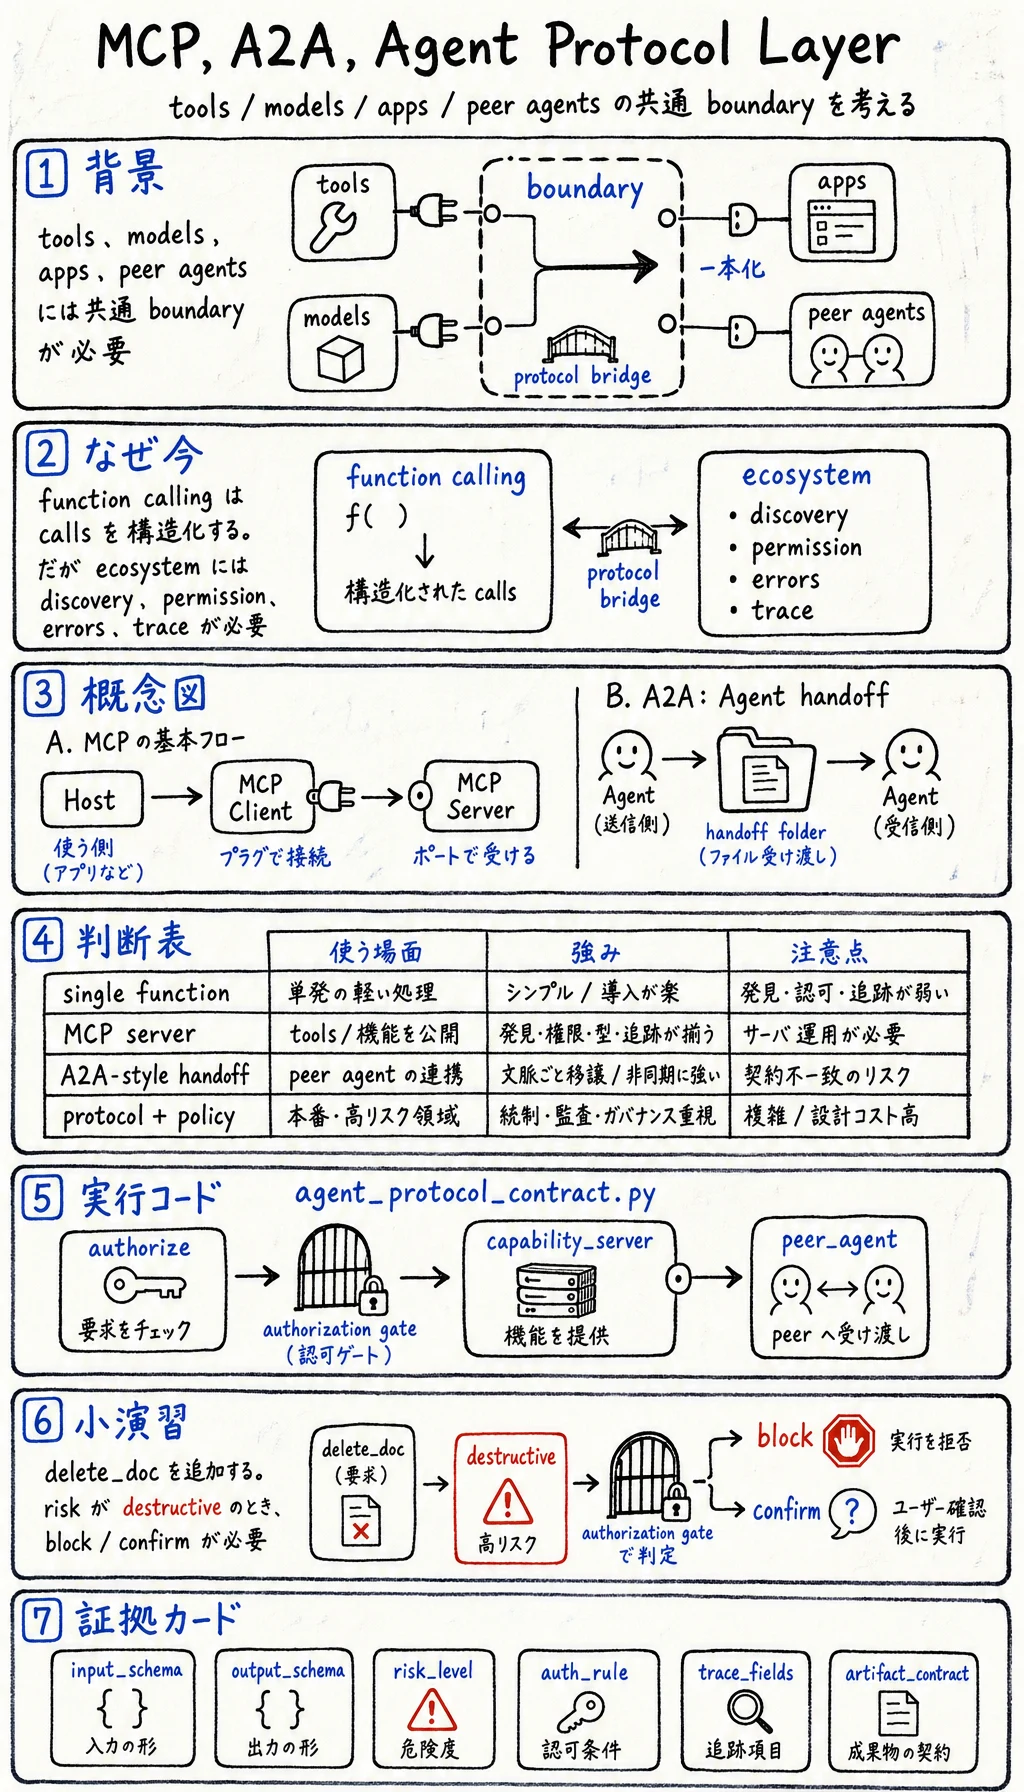 MCP, A2A, Agent Protocol Layer
tools / models / apps / peer agents の共通 boundary を考える
1 背景
tools、models,
apps、peer agents
には共通 boundary
が必要
tools
models
boundary
protocol bridge
一本化
apps
peer agents
2 なぜ今
function calling は
calls を構造化する。
だが ecosystem には
discovery、permission、
errors、trace が必要
function calling
f( )
構造化された calls
protocol
bridge
ecosystem
• discovery
• permission
• errors
• trace
3 概念図
A. MCP の基本フロー
Host
使う側
(アプリなど)
MCP
Client
プラグで接続
MCP
Server
ポートで受ける
B. A2A: Agent handoff
Agent
(送信側)
handoff folder
(ファイル受け渡し)
Agent
(受信側)
4 判断表
使う場面 強み 注意点
single function 単発の軽い処理 シンプル / 導入が楽 発見・認可・追跡が弱い
MCP server tools / 機能を公開 発見・権限・型・追跡が揃う サーバ運用が必要
A2A-style handoff peer agent の連携 文脈ごと移譲 / 非同期に強い 契約不一致のリスク
protocol + policy 本番・高リスク領域 統制・監査・ガバナンス重視 複雑 / 設計コスト高
5 実行コード
agent_protocol_contract.py
authorize
要求をチェック
authorization gate
(認可ゲート)
capability_server
機能を提供
peer_agent
peer へ受け渡し
6 小演習
delete_doc を追加する。
risk が destructive のとき、
block / confirm が必要
delete_doc
(要求)
destructive
高リスク
authorization gate
で判定
block
実行を拒否
confirm
?
ユーザー確認
後に実行
7 証拠カード
input_schema
{ }
入力の形
output_schema
{ }
出力の形
risk_level
危険度
auth_rule
認可条件
trace_fields
追跡項目
artifact_contract
成果物の契約